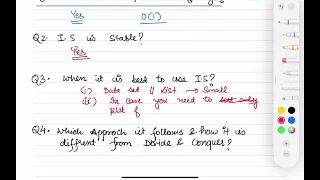 Yes O(1)
Q2. I.S is Stable?
Yes
Q3. When it is best to use I.S?
(i) Data set || List → Small
(ii) In case you need to sort only
part of
Q4. Which Approch it follows & how it is
diffrent from Devide & Conquer?